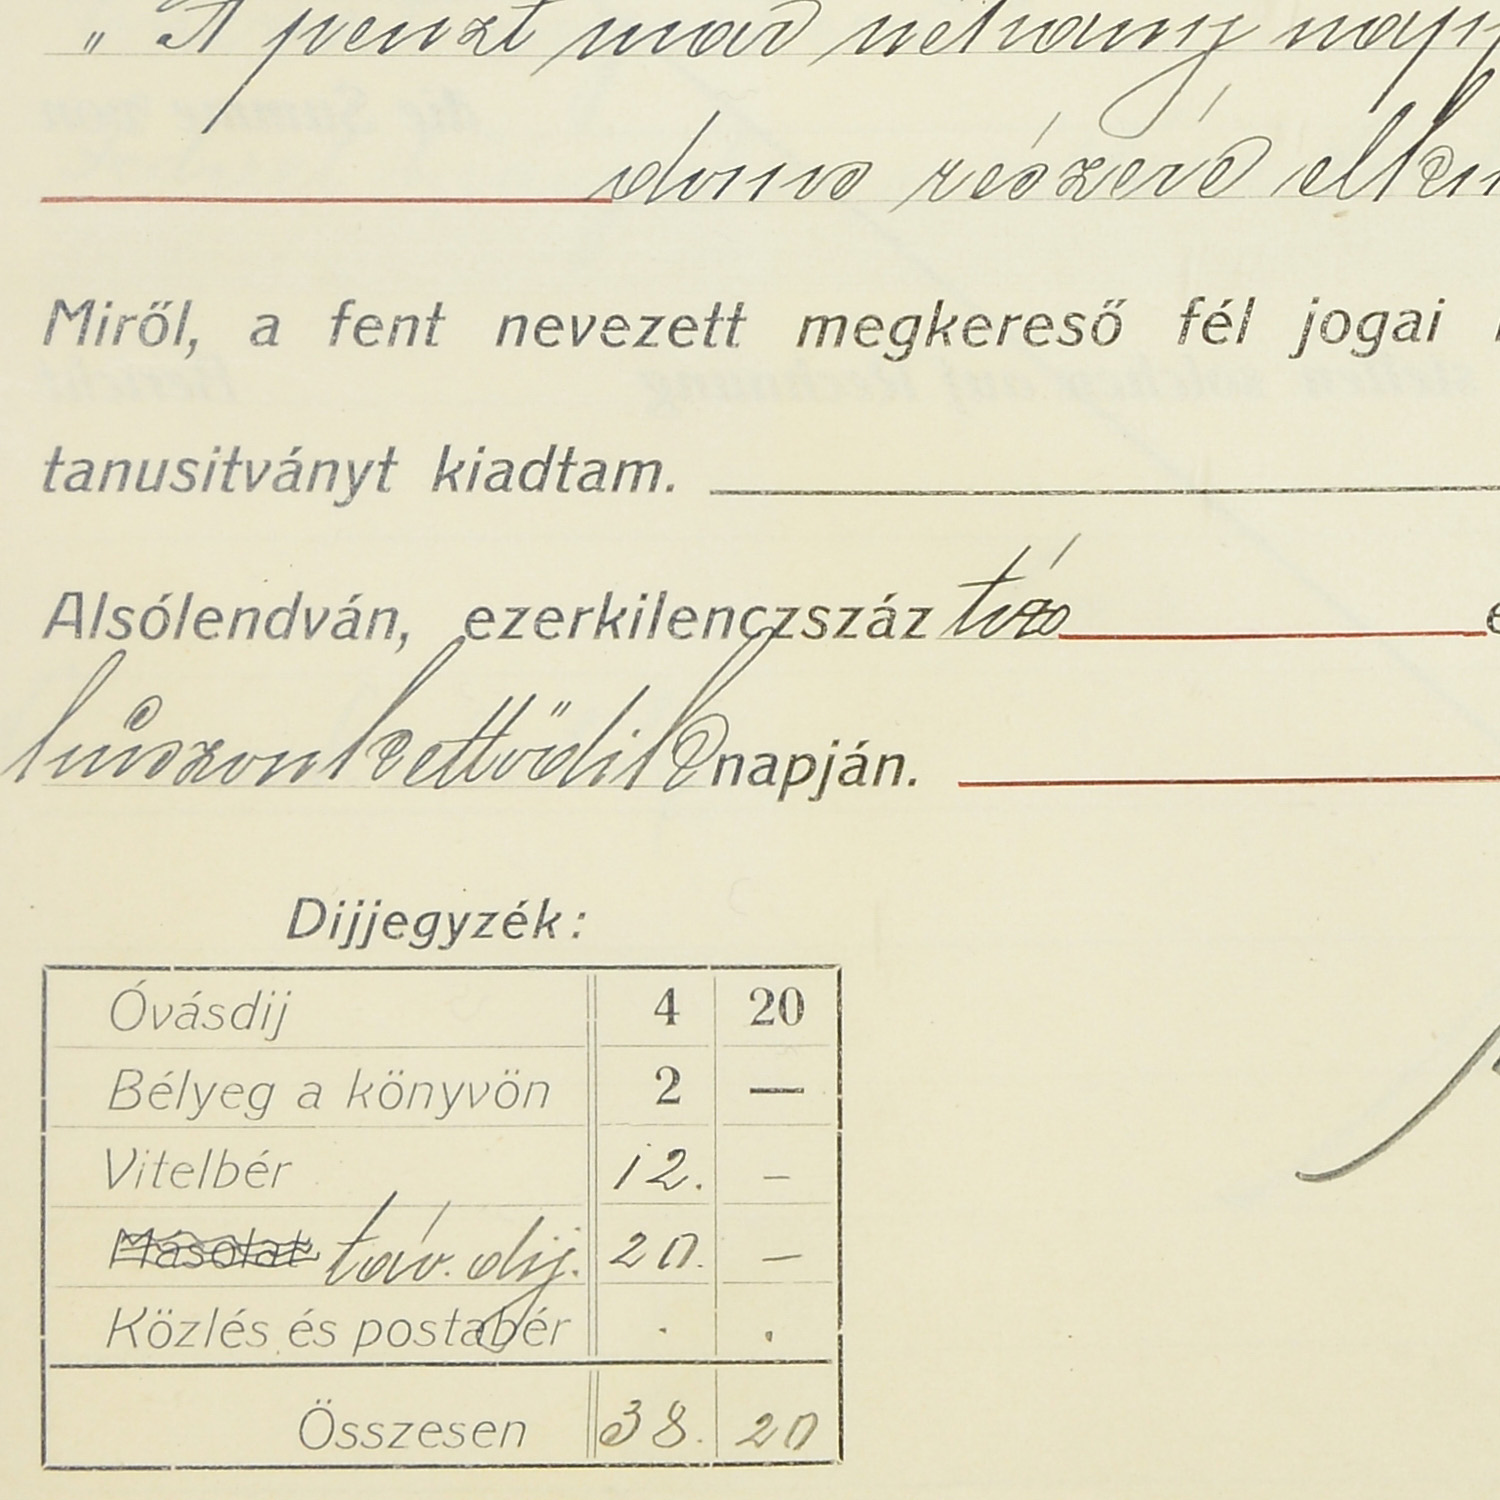 „A pénzt már néhány napp
donos részére elkü
Miről, a fent nevezett megkereső fél jogai
tanusitványt kiadtam.
Alsólendván, ezerkilenczszáz tíz
huszonkettödik napján.
Dijjegyzék:
Óvásdij 4 20
Bélyeg a könyvön 2 —
Vitelbér 12. –
Másolat táv. dij. 20. –
Közlés és postabér . .
Összesen 38. 20